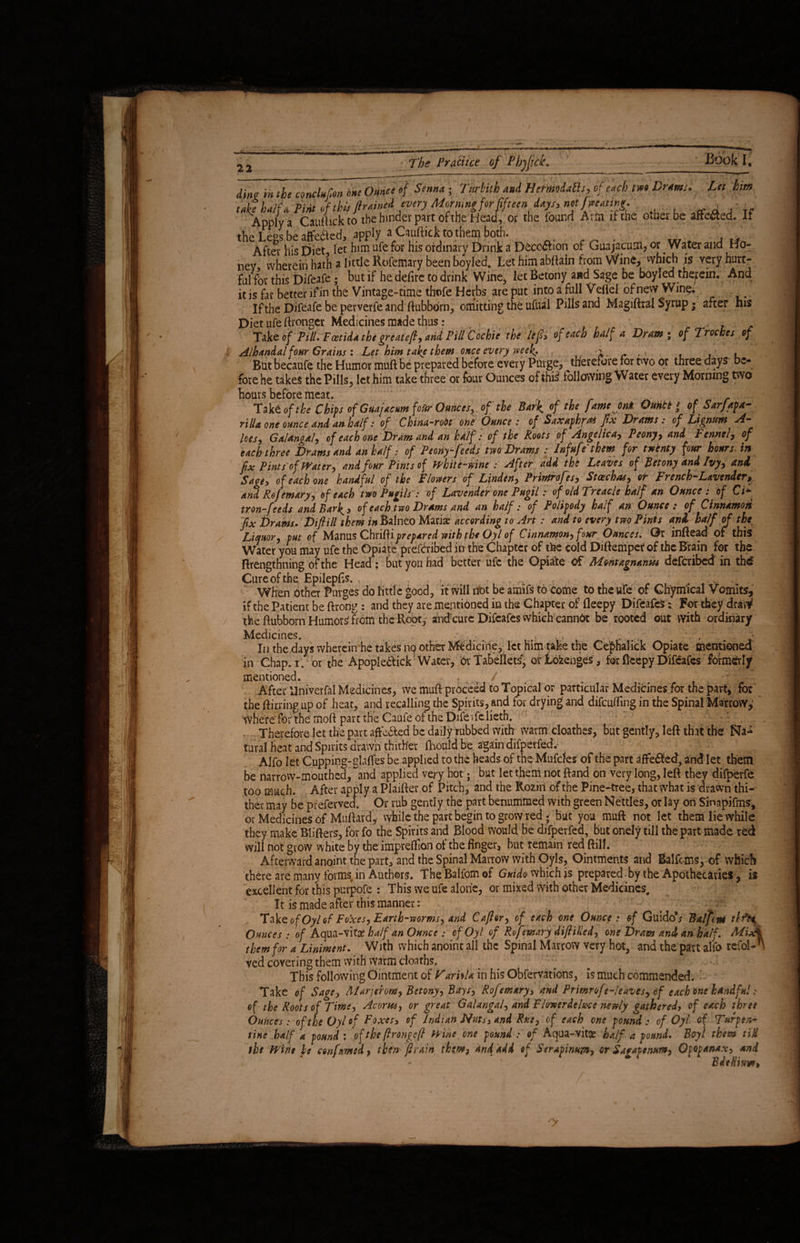 22 The Practice of Physick. Book I.
ding in the conclusion one Ounce of Senna ; Turbith and Hermodacts, of each two Drams. Let him
take half a Pint of this strained every Morning for fifteen days, not sweating.
Apply a Caustick to the hinder part of the Head, or the sound Arm if the other be affected. If
the Legs be affected, apply a Caustick to them both.
After his Diet, let him use for his ordinary Drink a Decoction of Guajacum, or Water and Ho-
ney, wherein hath a little Rosemary been boyled. Let him abstain from Wine, which is very hurt-
ful for this Disease ; but if he desire to drink Wine, let Betony and Sage be boyled therein. And
it is far better if in the Vintage-time those Herbs are put into a full Vessel of new Wine.
If the Disease be perverse and stubborn, omitting the usual Pills and Magistral Syrup ; after his
Diet use stronger Medicines made thus :
Take of Pill. Fœtida the greatest, and Pill Cochie the less, of each half a Dram ; of Troches of
Alhandal four Grains : Let him take them once every week.
But because the Humor must be prepared before every Purge, therefore for two or three days be-
fore he takes the Pills, let him take three or four Ounces of this following Water every Morning two
hours before meat.
Take of the Chips of Guajacum four Ounces, of the Bark of the same one Ounce ; of Sarsapa-
rilla one ounce and an half : of China-root one Ounce : of Saxaphras six Drams : of Lignum A-
loes, Galangal, of each one Dram and an half : of the Roots of Angelica, Peony, and Fennel, of
each three Drams and an half : of Peony-seeds two Drams : Infuse them for twenty four hours in
six Pints of Water, and four Pints of White-wine : After add the Leaves of Betony and Ivy, and
Sage, of each one handful of the Flowers of Linden, Primroses, Stœchas, or French-Lavender,
and Rosemary, of each two Pugils : of Lavender one Pugil : of old Treacle half an Ounce : of Ci-
tron-seeds and Bark, of each two Drams and an half : of Polipody half an Ounce : of Cinnamon
six Drams. Distill them in Balneo Mariæ according to Art : and to every two Pints and half of the
Liquor, put of Manus Christi prepared with the Oyl of Cinnamon, four Ounces. Or instead of this
Water you may use the Opiate prescribed in the Chapter of the cold Distemper of the Brain for the
strengthning of the Head ; but you had better use the Opiate of Montagnanus described in the
Cure of the Epilepsis.
When other Purges do little good, it will not be amiss to come to the use of Chymical Vomits,
if the Patient be strong : and they are mentioned in the Chapter of sleepy Diseases : For they draw
the stubborn Humors from the Root, and cure Diseases which cannot be rooted out with ordinary
Medicines.
In the days wherein he takes no other Medicine, let him take the Cephalick Opiate mentioned
in Chap. 1. or the Apoplectick Water, or Tabellets, or Lozenges, for sleepy Diseases formerly
mentioned.
After Universal Medicines, we must proceed to Topical or particular Medicines for the part, for
the stirring up of heat, and recalling the Spirits, and for drying and discussing in the Spinal Marrow,
where for the most part the Cause of the Disease lieth.
Therefore let the part affected be daily rubbed with warm cloathes, but gently, lest that the Na-
tural heat and Spirits drawn thither should be again dispersed.
Also let Cupping-glasses be applied to the heads of the Muscles of the part affected, and let them
be narrow-mouthed, and applied very hot ; but let them not stand on very long, lest they disperse
too much. After apply a Plaister of Pitch, and the Rozin of the Pine-tree, that what is drawn thi-
ther may be preserved. Or rub gently the part benummed with green Nettles, or lay on Sinapisms,
or Medicines of Mustard, while the part begin to grow red ; but you must not let them lie while
they make Blisters, for so the Spirits and Blood would be dispersed, but onely till the part made red
will not grow white by the impression of the finger, but remain red still.
Afterward anoint the part, and the Spinal Marrow with Oyls, Ointments and Balsoms, of which
there are many forms in Authors. The Balsom of Guido which is prepared by the Apothecaries, is
excellent for this purpose : This we use alone, or mixed with other Medicines.
It is made after this manner :
Take of Oyl of Foxes, Earth-worms, and Castor, of each one Ounce : of Guido's Balsom three
Ounces : of Aqua-vitæ half an Ounce : of Oyl of Rosemary distilled, one Dram and an half. Mix
them for a Liniment. With which anoint all the Spinal Marrow very hot, and the part also resol-
ved covering them with warm cloaths.
This following Ointment of Variola in his Observations, is much commended.
Take of Sage, Marjerom, Betony, Bays, Rosemary, and Primrose-leaves, of each one handful :
of the Roots of Time, Acorus, or great Galangal, and Flowerdeluce newly gathered, of each three
Ounces : of the Oyl of Foxes, of Indian Nuts, and Rue, of each one pound : of Oyl of Turpen-
tine half a pound : of the strongest Wine one pound : of Aqua-vitæ half a pound. Boyl them till
the Wine be consumed, then strain them, and add of Serapinum, or Sagapenum, Opopanax, and
Bdellium,